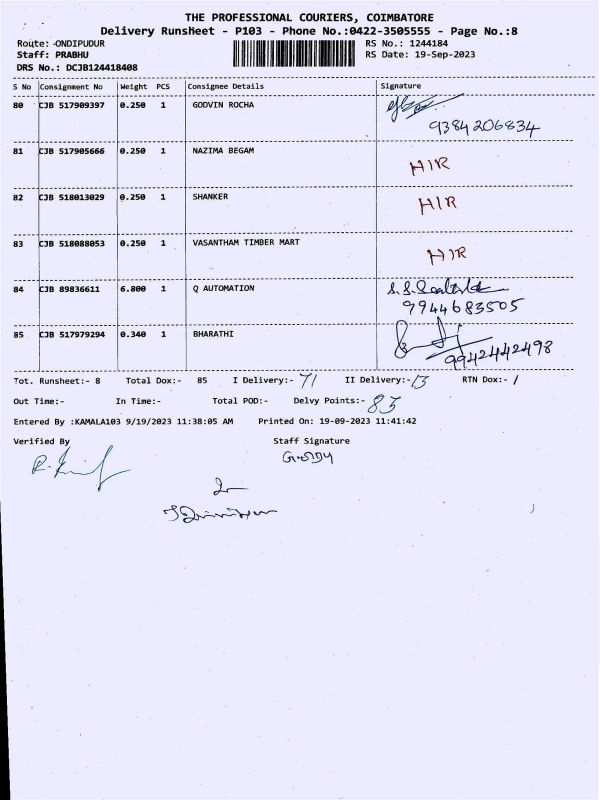 THE PROFESSIONAL COURIERS, COIMBATORE
Delivery Runsheet - P103 - Phone No.:0422-3505555 - Page No.:8
Route: ONDIPUDUR RS No.: 1244184
Staff: PRABHU RS Date: 19-Sep-2023
DRS No.: DCJB124418408
S No Consignment No Weight PCS Consignee Details Signature
80 CJB 517909397 0.250 1 GODVIN ROCHA
9384206834
81 CJB 517905666 0.250 1 NAZIMA BEGAM HIR
82 CJB 518013029 0.250 1 SHANKER HIR
83 CJB 518088053 0.250 1 VASANTHAM TIMBER MART HIR
84 CJB 89836611 6.800 1 Q AUTOMATION
9944683505
85 CJB 517979294 0.340 1 BHARATHI
9942442498
Tot. Runsheet:- 8 Total Dox:- 85 I Delivery:- 71 II Delivery:- 13 RTN Dox:- /
Out Time:- In Time:- Total POD:- Delvy Points:- 83
Entered By :KAMALA103 9/19/2023 11:38:05 AM Printed On: 19-09-2023 11:41:42
Verified By Staff Signature